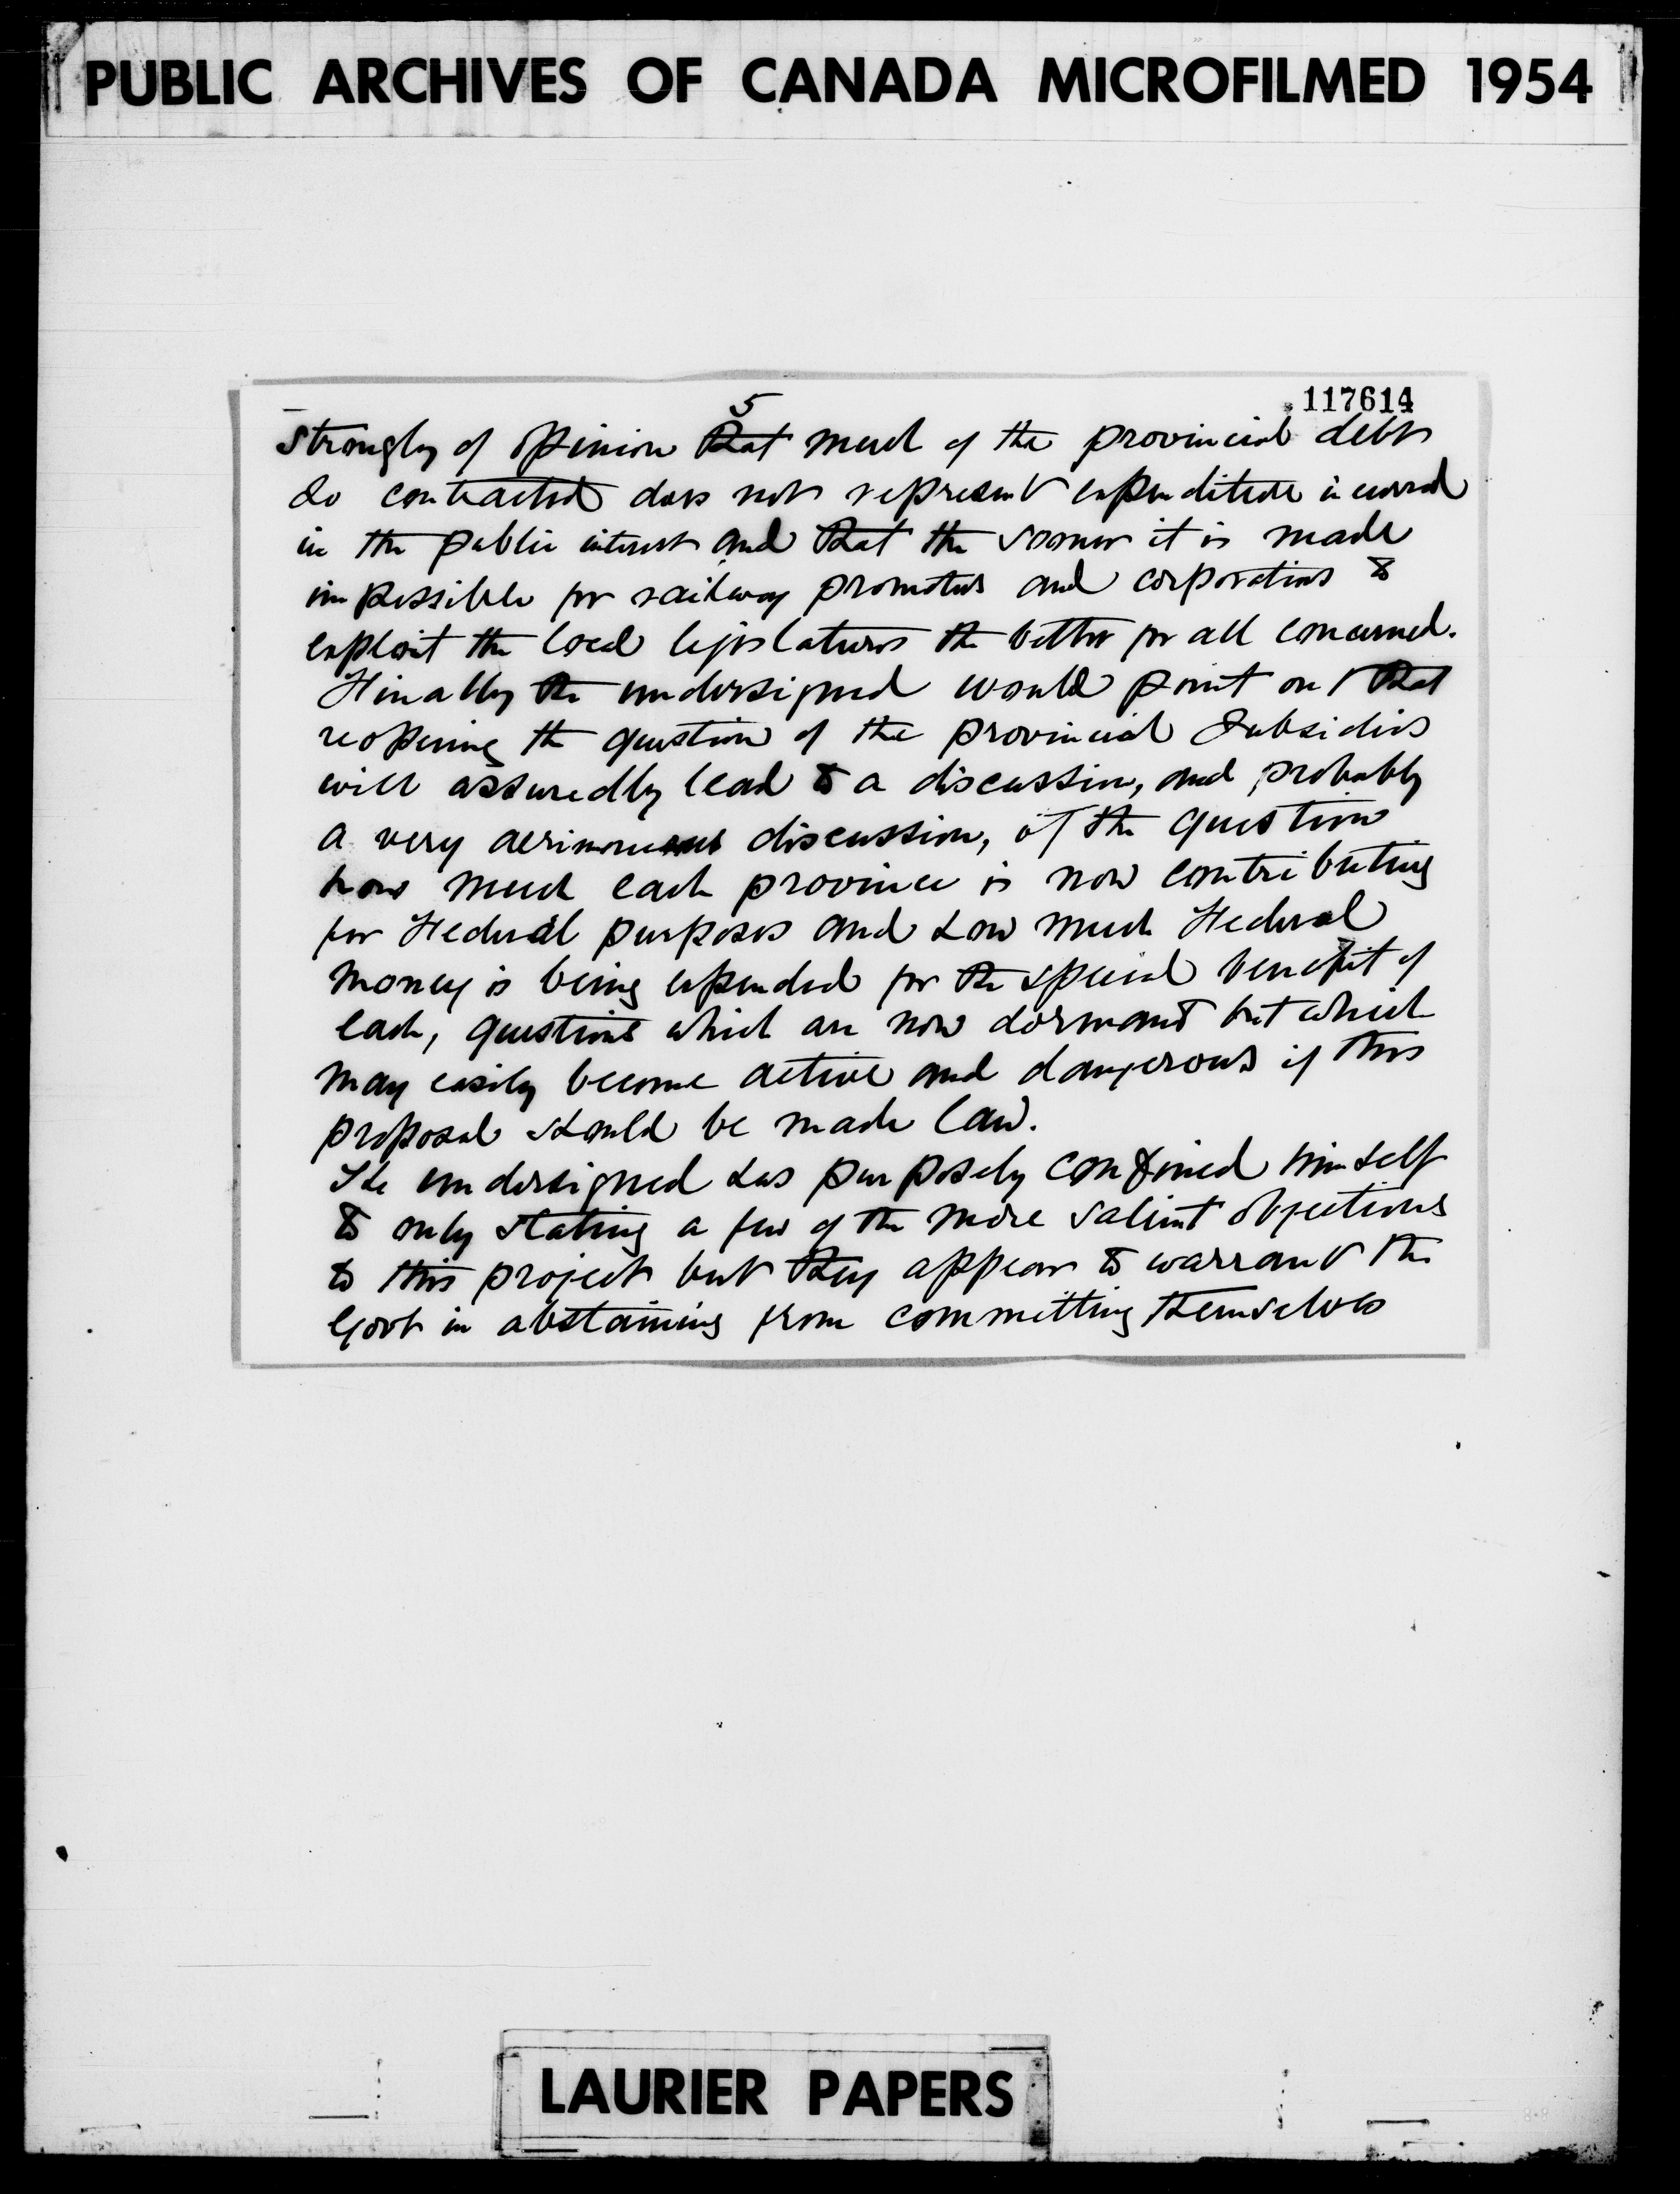 PUBLIC ARCHIVES OF CANADA MICROFILMED 1954
5
117614
strongly of opinion that much of the provincial debt
so contracted does not represent expenditure incurred
in the public interest and that the sooner it is made
impossible for railway promoters and corporations to
exploit the local legislatures the better for all concerned.
Finally the undersigned would point out that
reopening the question of the provincial subsidies
will assuredly lead to a discussion, and probably
a very acrimonious discussion, of the question
how much each province is now contributing
for Federal purposes and how much Federal
money is being expended for the special benefit of
each, questions which are now dormant but which
may easily become active and dangerous if this
proposal should be made law.
The undersigned has purposely confined himself
to only stating a few of the more salient objections
to this project but they appear to warrant the
Govt in abstaining from committing themselves
LAURIER PAPERS